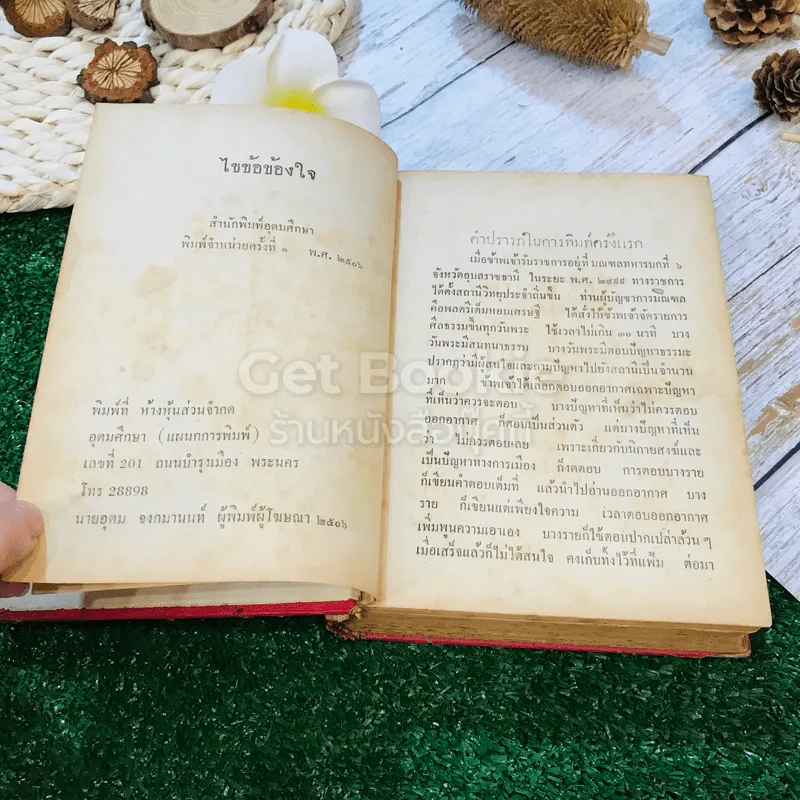 ไขข้อข้องใจ
สำนักพิมพ์อุดมศึกษา
พิมพ์จำหน่ายครั้งที่ ๑ พ.ศ. ๒๕๐๖
พิมพ์ที่ ห้างหุ้นส่วนจำกด
อุดมศึกษา (แผนกการพิมพ์)
เลขที่ 201 ถนนบำรุงเมือง พระนคร
โทร 28898
นายอุดม จงกมานนท์ ผู้พิมพ์ผู้โฆษณา ๒๕๐๖
คำปรารภในการพิมพ์ครั้งแรก
เมื่อข้าพเจ้ารับราชการอยู่ที่ มณฑลทหารบกที่ ๖
จังหวัดอุบลราชธานี ในระยะ พ.ศ. ๒๔๙๘ ทางราชการ
ได้ตั้งสถานีวิทยุประจำถิ่นขึ้น ท่านผู้บัญชาการมณฑล
คือพลตรีเต็มหอมเศรษฐี ได้สั่งให้ข้าพเจ้าจัดรายการ
ศีลธรรมขึ้นทุกวันพระ ใช้เวลาไม่เกิน ๓๐ นาที บาง
วันพระมีสนทนาธรรม บางวันพระมีตอบปัญหาธรรมะ
ปรากฏว่ามีผู้สนใจและถามปัญหาไปยังสถานีเป็นจำนวน
มาก ข้าพเจ้าได้เลือกตอบออกอากาศเฉพาะปัญหา
ที่เห็นว่าควรจะตอบ บางปัญหาที่เห็นว่าไม่ควรตอบ
ออกอากาศ ก็ตอบเป็นส่วนตัว แต่บางปัญหาที่เห็น
ว่า ไม่ควรตอบเลย เพราะเกี่ยวกับนิกายสงฆ์และ
เป็นปัญหาทางการเมือง ก็งดตอบ การตอบบางราย
ก็เขียนคำตอบเต็มที่ แล้วนำไปอ่านออกอากาศ บาง
ราย ก็เขียนแต่เพียงใจความ เวลาตอบออกอากาศ
เพิ่มพูนความเอาเอง บางรายก็ใช้ตอบปากเปล่าล้วน ๆ
เมื่อเสร็จแล้วก็ไม่ได้สนใจ คงเก็บทิ้งไว้ที่แฟ้ม ต่อมา
Get Bookie
ร้านหนังสือบุ๊คกี้